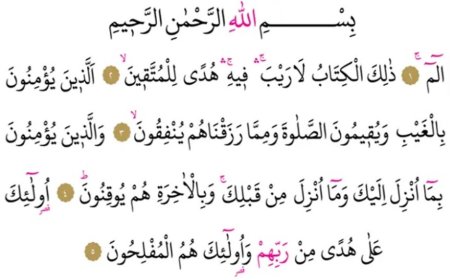 بِسْمِ اللّٰهِ الرَّحْمٰنِ الرَّحٖيمِ
الٓمٓ ۚ ﴿١﴾ ذٰلِكَ الْكِتَابُ لَا رَيْبَ ۚۛ فٖيهِ ۚۛ هُدًى لِلْمُتَّقٖينَ ۙ ﴿٢﴾ اَلَّذٖينَ يُؤْمِنُونَ
بِالْغَيْبِ وَيُقٖيمُونَ الصَّلٰوةَ وَمِمَّا رَزَقْنَاهُمْ يُنْفِقُونَ ۙ ﴿٣﴾ وَالَّذٖينَ يُؤْمِنُونَ
بِمَٓا اُنْزِلَ اِلَيْكَ وَمَٓا اُنْزِلَ مِنْ قَبْلِكَ ۚ وَبِالْاٰخِرَةِ هُمْ يُوقِنُونَ ؕ ﴿٤﴾ اُولٰٓئِكَ
عَلٰى هُدًى مِنْ رَبِّهِمْ وَاُولٰٓئِكَ هُمُ الْمُفْلِحُونَ ﴿٥﴾